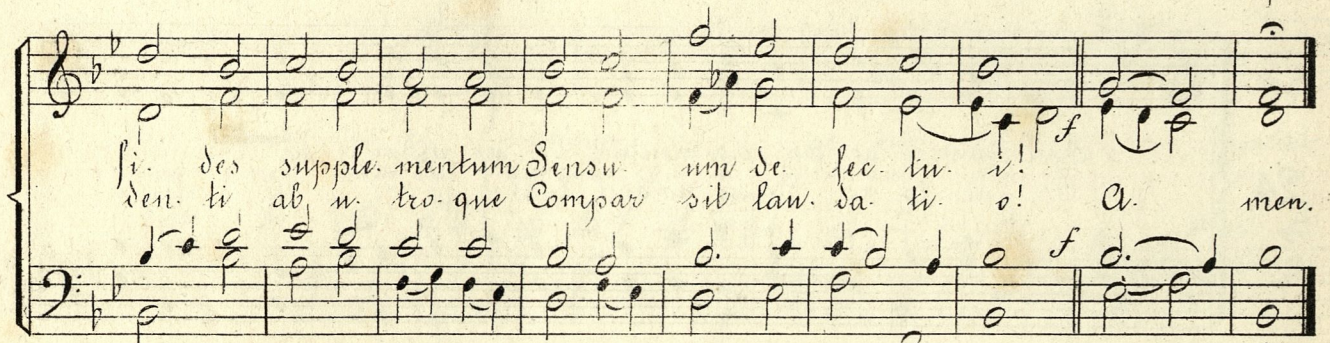 f
fi. des supple. mentum Sensu. um de. fec. tu. i!
den. ti ab u. tro. que Compar sit lau. da. ti. o! A. men.
f